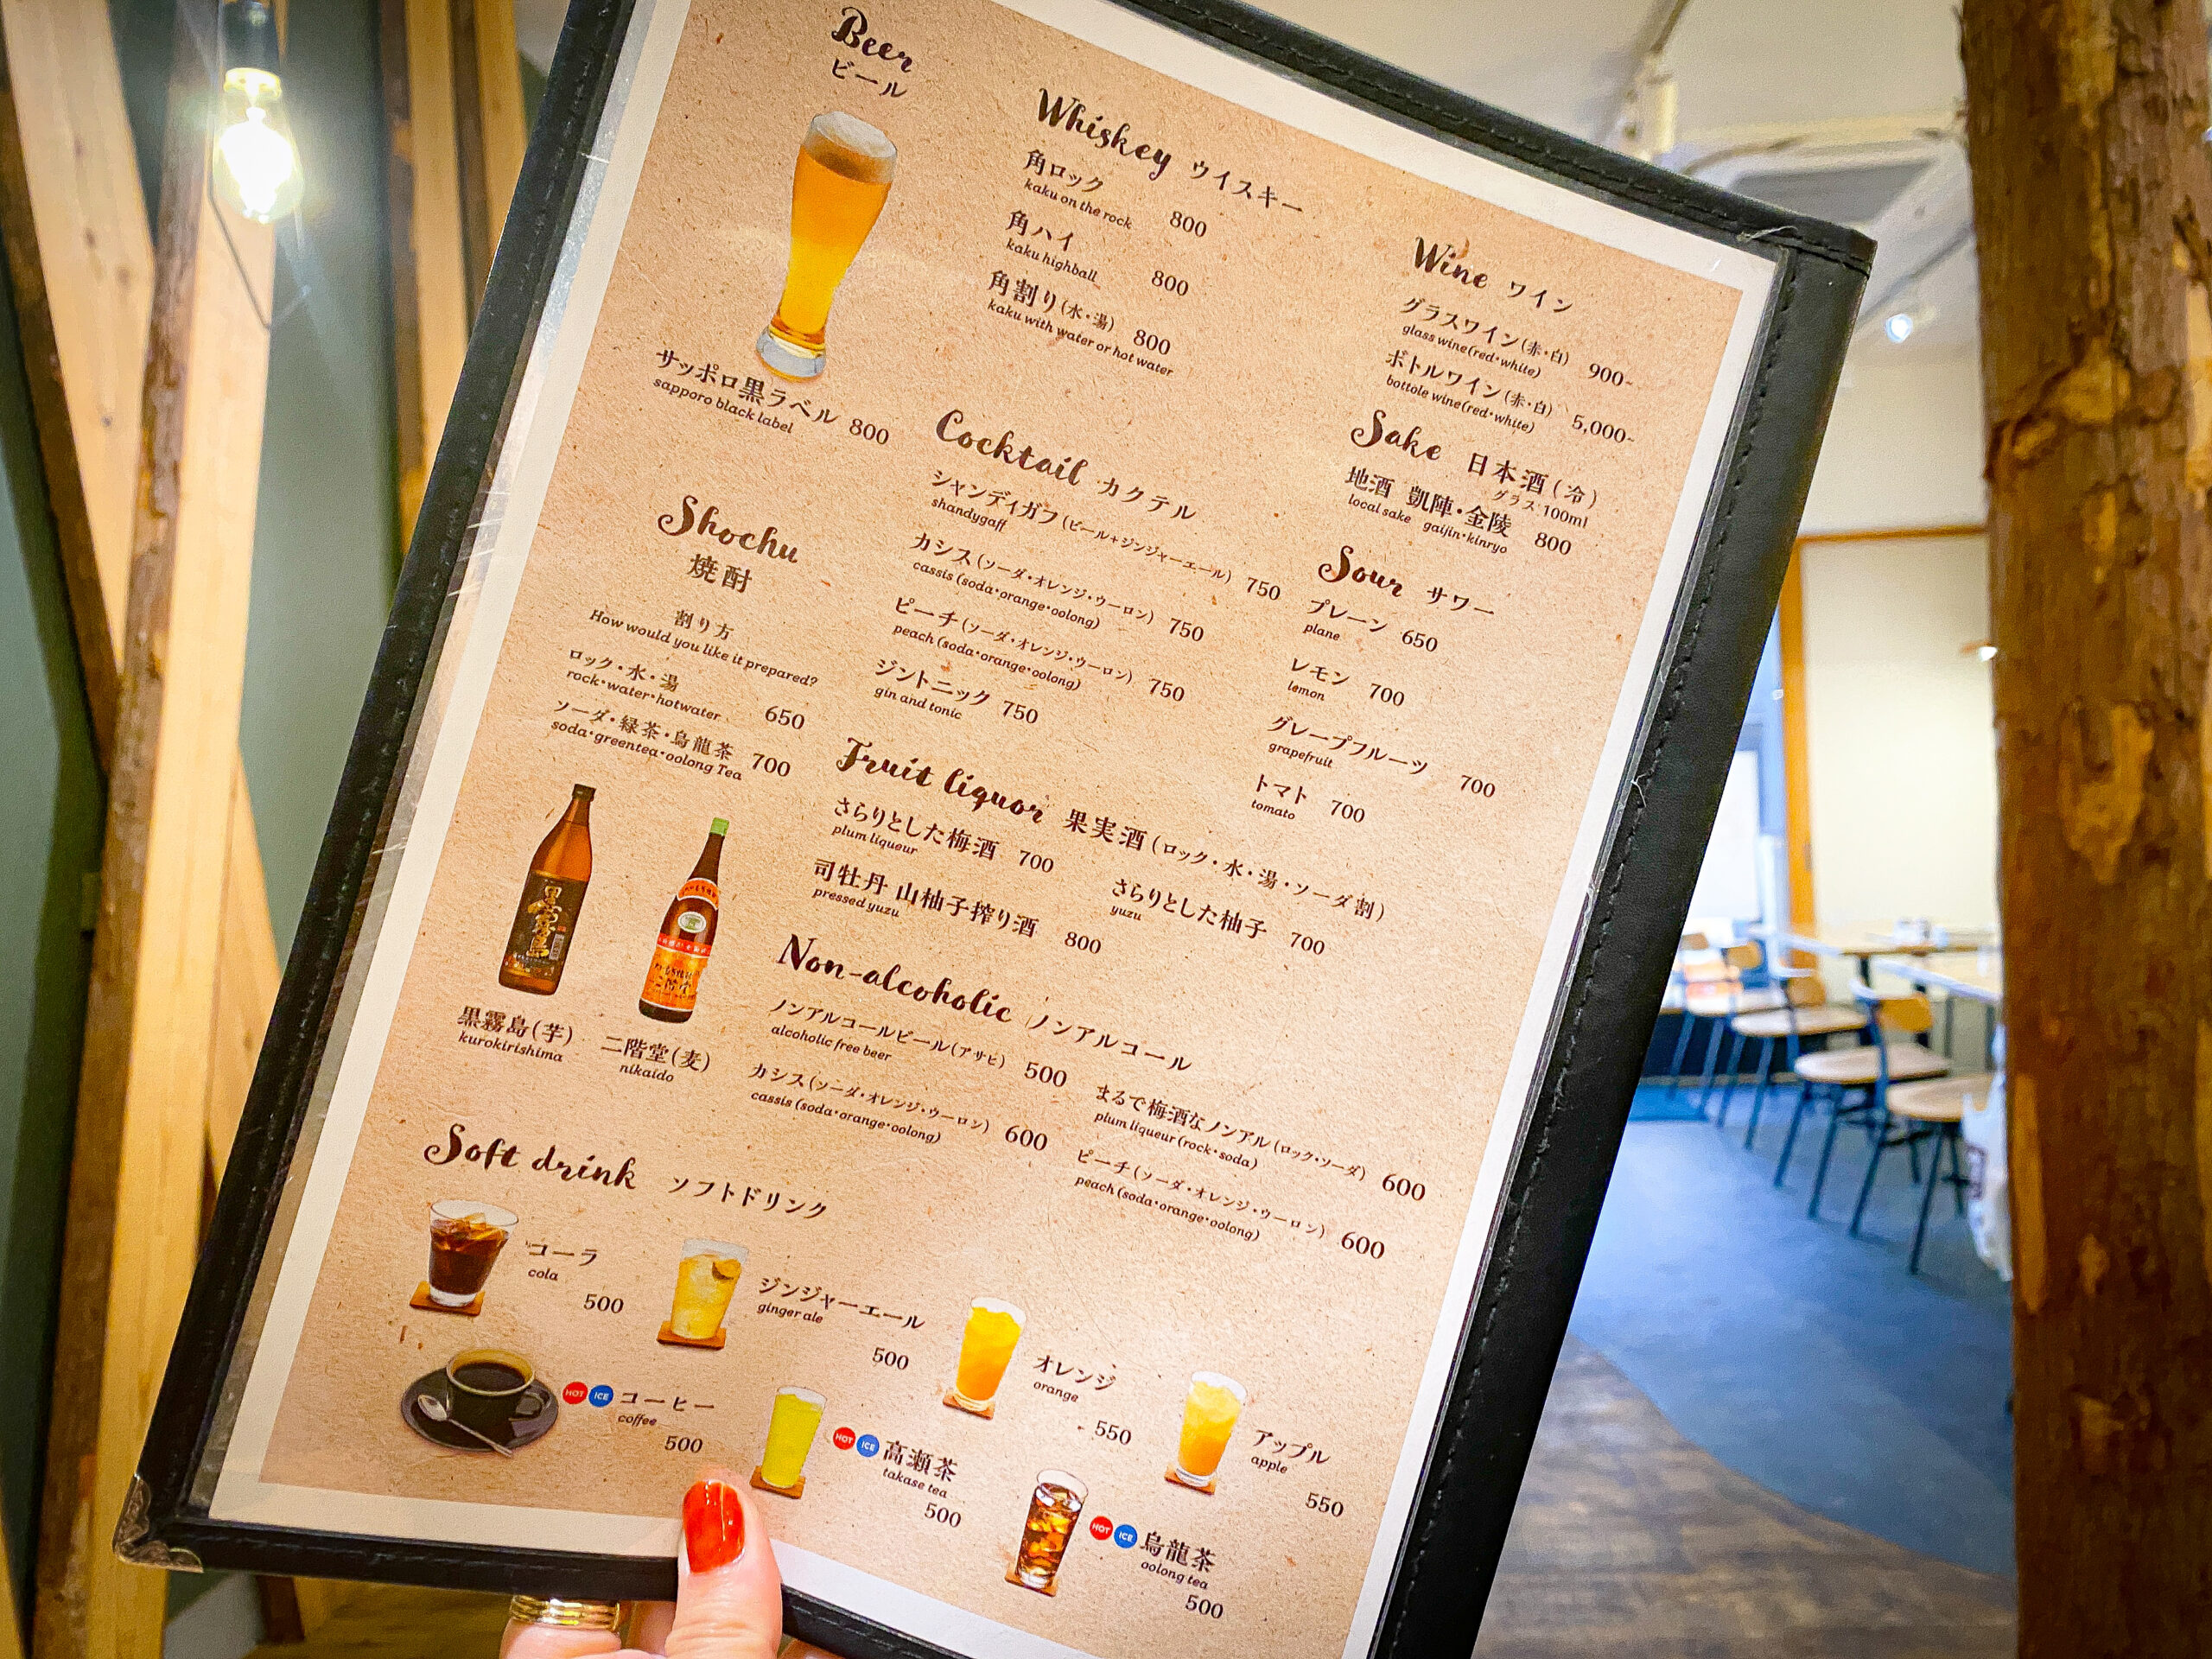 Beer
ビール
サッポロ黒ラベル 800
sapporo black label
Whiskey ウイスキー
角ロック
kaku on the rock 800
角ハイ
kaku highball 800
角割り(水・湯) 800
kaku with water or hot water
Wine ワイン
グラスワイン(赤・白) 900~
glass wine(red・white)
ボトルワイン(赤・白) 5,000~
bottole wine(red・white)
Sake 日本酒(冷)
グラス100ml
地酒 凱陣・金陵 800
local sake gaijin・kinryo
Sour サワー
プレーン 650
plane
レモン 700
lemon
グレープフルーツ 700
grapefruit
トマト 700
tomato
Cocktail カクテル
シャンディガフ(ビール+ジンジャーエール) 750
shandygaff
カシス(ソーダ・オレンジ・ウーロン) 750
cassis (soda・orange・oolong)
ピーチ(ソーダ・オレンジ・ウーロン) 750
peach (soda・orange・oolong)
ジントニック 750
gin and tonic
Shochu
焼酎
割り方
How would you like it prepared?
ロック・水・湯
rock・water・hotwater 650
ソーダ・緑茶・烏龍茶 700
soda・greentea・oolong Tea
黒霧島
二階堂
黒霧島(芋)
kurokirishima
二階堂(麦)
nikaido
Fruit liquor 果実酒(ロック・水・湯・ソーダ割)
さらりとした梅酒 700
plum liqueur
さらりとした柚子 700
yuzu
司牡丹 山柚子搾り酒 800
pressed yuzu
Non-alcoholic ノンアルコール
ノンアルコールビール(アサヒ) 500
alcoholic free beer
まるで梅酒なノンアル(ロック・ソーダ) 600
plum liqueur (rock・soda)
カシス(ソーダ・オレンジ・ウーロン) 600
cassis (soda・orange・oolong)
ピーチ(ソーダ・オレンジ・ウーロン) 600
peach (soda・orange・oolong)
Soft drink ソフトドリンク
コーラ
cola
500
ジンジャーエール
ginger ale
500
オレンジ
orange
550
アップル
apple
550
HOT ICE コーヒー
coffee
500
HOT ICE 高瀬茶
takase tea
500
HOT ICE 烏龍茶
oolong tea
500